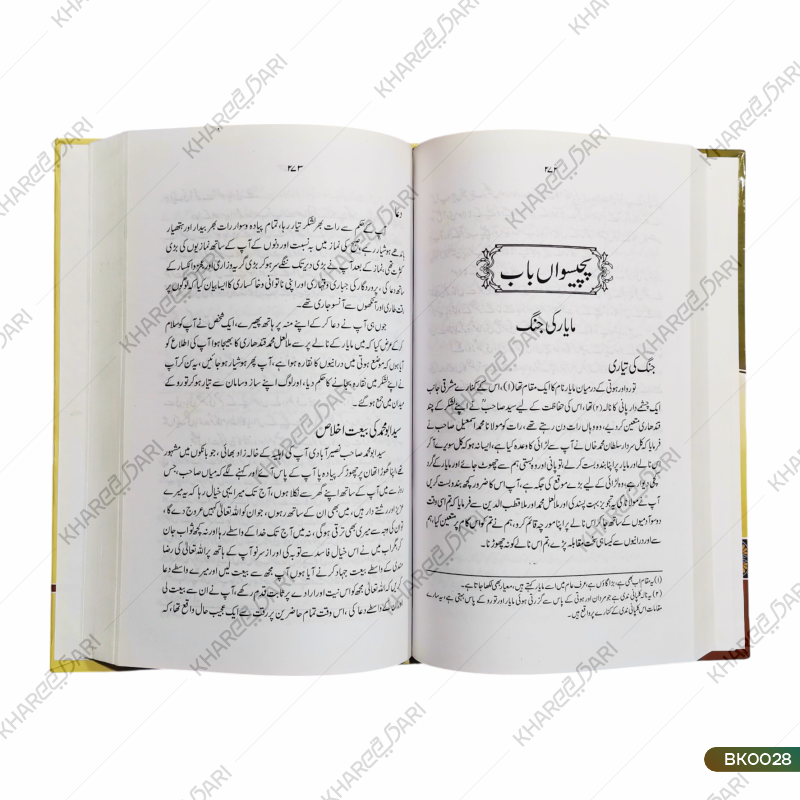 ۲۷۲
پچیسواں باب
مایار کی جنگ
جنگ کی تیاری
تورو اور ہوتی کے درمیان مایار نام کا ایک مقام تھا (۱)، اس کے کنارے مشرقی جانب
ایک چشمے دار پانی کا نالہ (۲) تھا، اس کی حفاظت کے لیے سید صاحبؒ نے اپنے لشکر کے چند
قندھاری متعین کر دیے، وہ وہاں رات دن رہتے تھے، رات کو مولانا محمد اسمعیل صاحب نے
فرمایا کہ کل سردار سلطان محمد خاں نے آپ سے لڑائی کا وعدہ کیا ہے، ایسا نہ ہو کہ کل سویرے آ کر
اس نالے اور مایار پر اپنا بندوبست کر لے، تو پانی اور وہ بستی ہم سے چھوٹ جائے اور مایار کے گرد
کچی دیوار ہے، وہ لڑائی کے لیے بڑے موقع کی جگہ ہے، آپ اس کا ضرور کچھ بندوبست کریں
آپ نے مولانا کی یہ تجویز بہت پسند کی اور ملا لعل محمد اور ملا قطب الدین سے فرمایا کہ تم اسی وقت
دو سو آدمیوں کے ساتھ جا کر اس نالے پر اپنا مورچہ قائم کرو، ہم نے تم کو اس کام پر متعین کیا، ہم
سے اور درانیوں سے کیسا ہی سخت مقابلہ پڑے، تم اس نالے کو نہ چھوڑنا۔
(۱) یہ مقام اب بھی ہے، بڑا گاؤں ہے، عرف عام میں اسے مایار کہتے ہیں، معیار بھی لکھا جاتا ہے۔
(۲) یہ نالہ کلپانی ندی ہے جو مردان اور ہوتی کے پاس سے گزرتی ہوئی مایار اور تورو کے پاس بہتی ہے، یہ سارے
مقامات اس کلپانی ندی کے کنارے پر واقع ہیں۔
۲۷۳
دعا
آپ کے حکم سے رات بھر لشکر تیار رہا، تمام پیادہ و سوار رات بھر بیدار اور ہتھیار
باندھے ہوشیار رہے، صبح کی نماز میں بہ نسبت اور دنوں کے آپ کے ساتھ نمازیوں کی بڑی
کثرت تھی، نماز کے بعد آپ نے بڑی دیر تک ننگے سر ہو کر بڑی گریہ و زاری اور عجز و انکسار کے
ساتھ دعا کی، پروردگار کی جباری و قہاری اور اپنی ناتوانی و خاکساری کا ایسا بیان کیا کہ لوگوں پر
رقت طاری اور آنکھوں سے آنسو جاری تھے۔
جوں ہی آپ نے دعا کر کے اپنے منہ پر ہاتھ پھیرے، ایک شخص نے آپ کو سلام
کر کے عرض کیا کہ میں مایار کے نالے پر سے ملا لعل محمد قندھاری کا بھیجا ہوا آپ کی اطلاع کو
آیا ہوں کہ موضع ہوتی میں درانیوں کا نقارہ ہوا ہے، آپ پھر ہوشیار ہو جائیں، یہ سن کر آپ
نے اپنے لشکر میں نقارہ بجانے کا حکم دیا، اور لوگ اپنے ساز و سامان سے تیار ہو کر تورو کے
میدان میں جمع ہو گئے۔
سید ابو محمد کی بیعت اخلاص
سید ابو محمد صاحب نصیرآبادی آپ کی اہلیہ کے خالہ زاد بھائی، جو بانکوں میں مشہور
تھے اپنا گھوڑا تھان پر چھوڑ کر پیادہ پا آپ کے پاس آئے اور کہنے لگے کہ میاں صاحب، جس
روز سے میں آپ کے ساتھ اپنے گھر سے نکلا ہوں، آج تک میرا یہی خیال رہا کہ یہ میرے
عزیز اور رشتے دار ہیں، میں بھی ان کے ساتھ رہوں، جو ان کو اللہ تعالیٰ کہیں عروج دے گا،
تو ان کی وجہ سے میری بھی ترقی ہوگی، نہ میں آج تک خدا کے واسطے رہا اور نہ کچھ ثواب جان
کر، مگر اب میں نے اس خیال فاسد سے توبہ کی اور از سر نو آپ کے ہاتھ پر اللہ تعالیٰ کی رضا
کے واسطے بیعت جہاد کرنے آیا ہوں، آپ مجھ سے بیعت لیں اور میرے واسطے دعا
کریں کہ اللہ تعالیٰ مجھ کو اس نیت اور ارادے پر ثابت قدم رکھے، آپ نے ان سے بیعت لی
اور ان کے واسطے دعا کی، اس وقت تمام حاضرین پر رقت سے ایک عجیب حال واقع تھا، کہ
BK0028